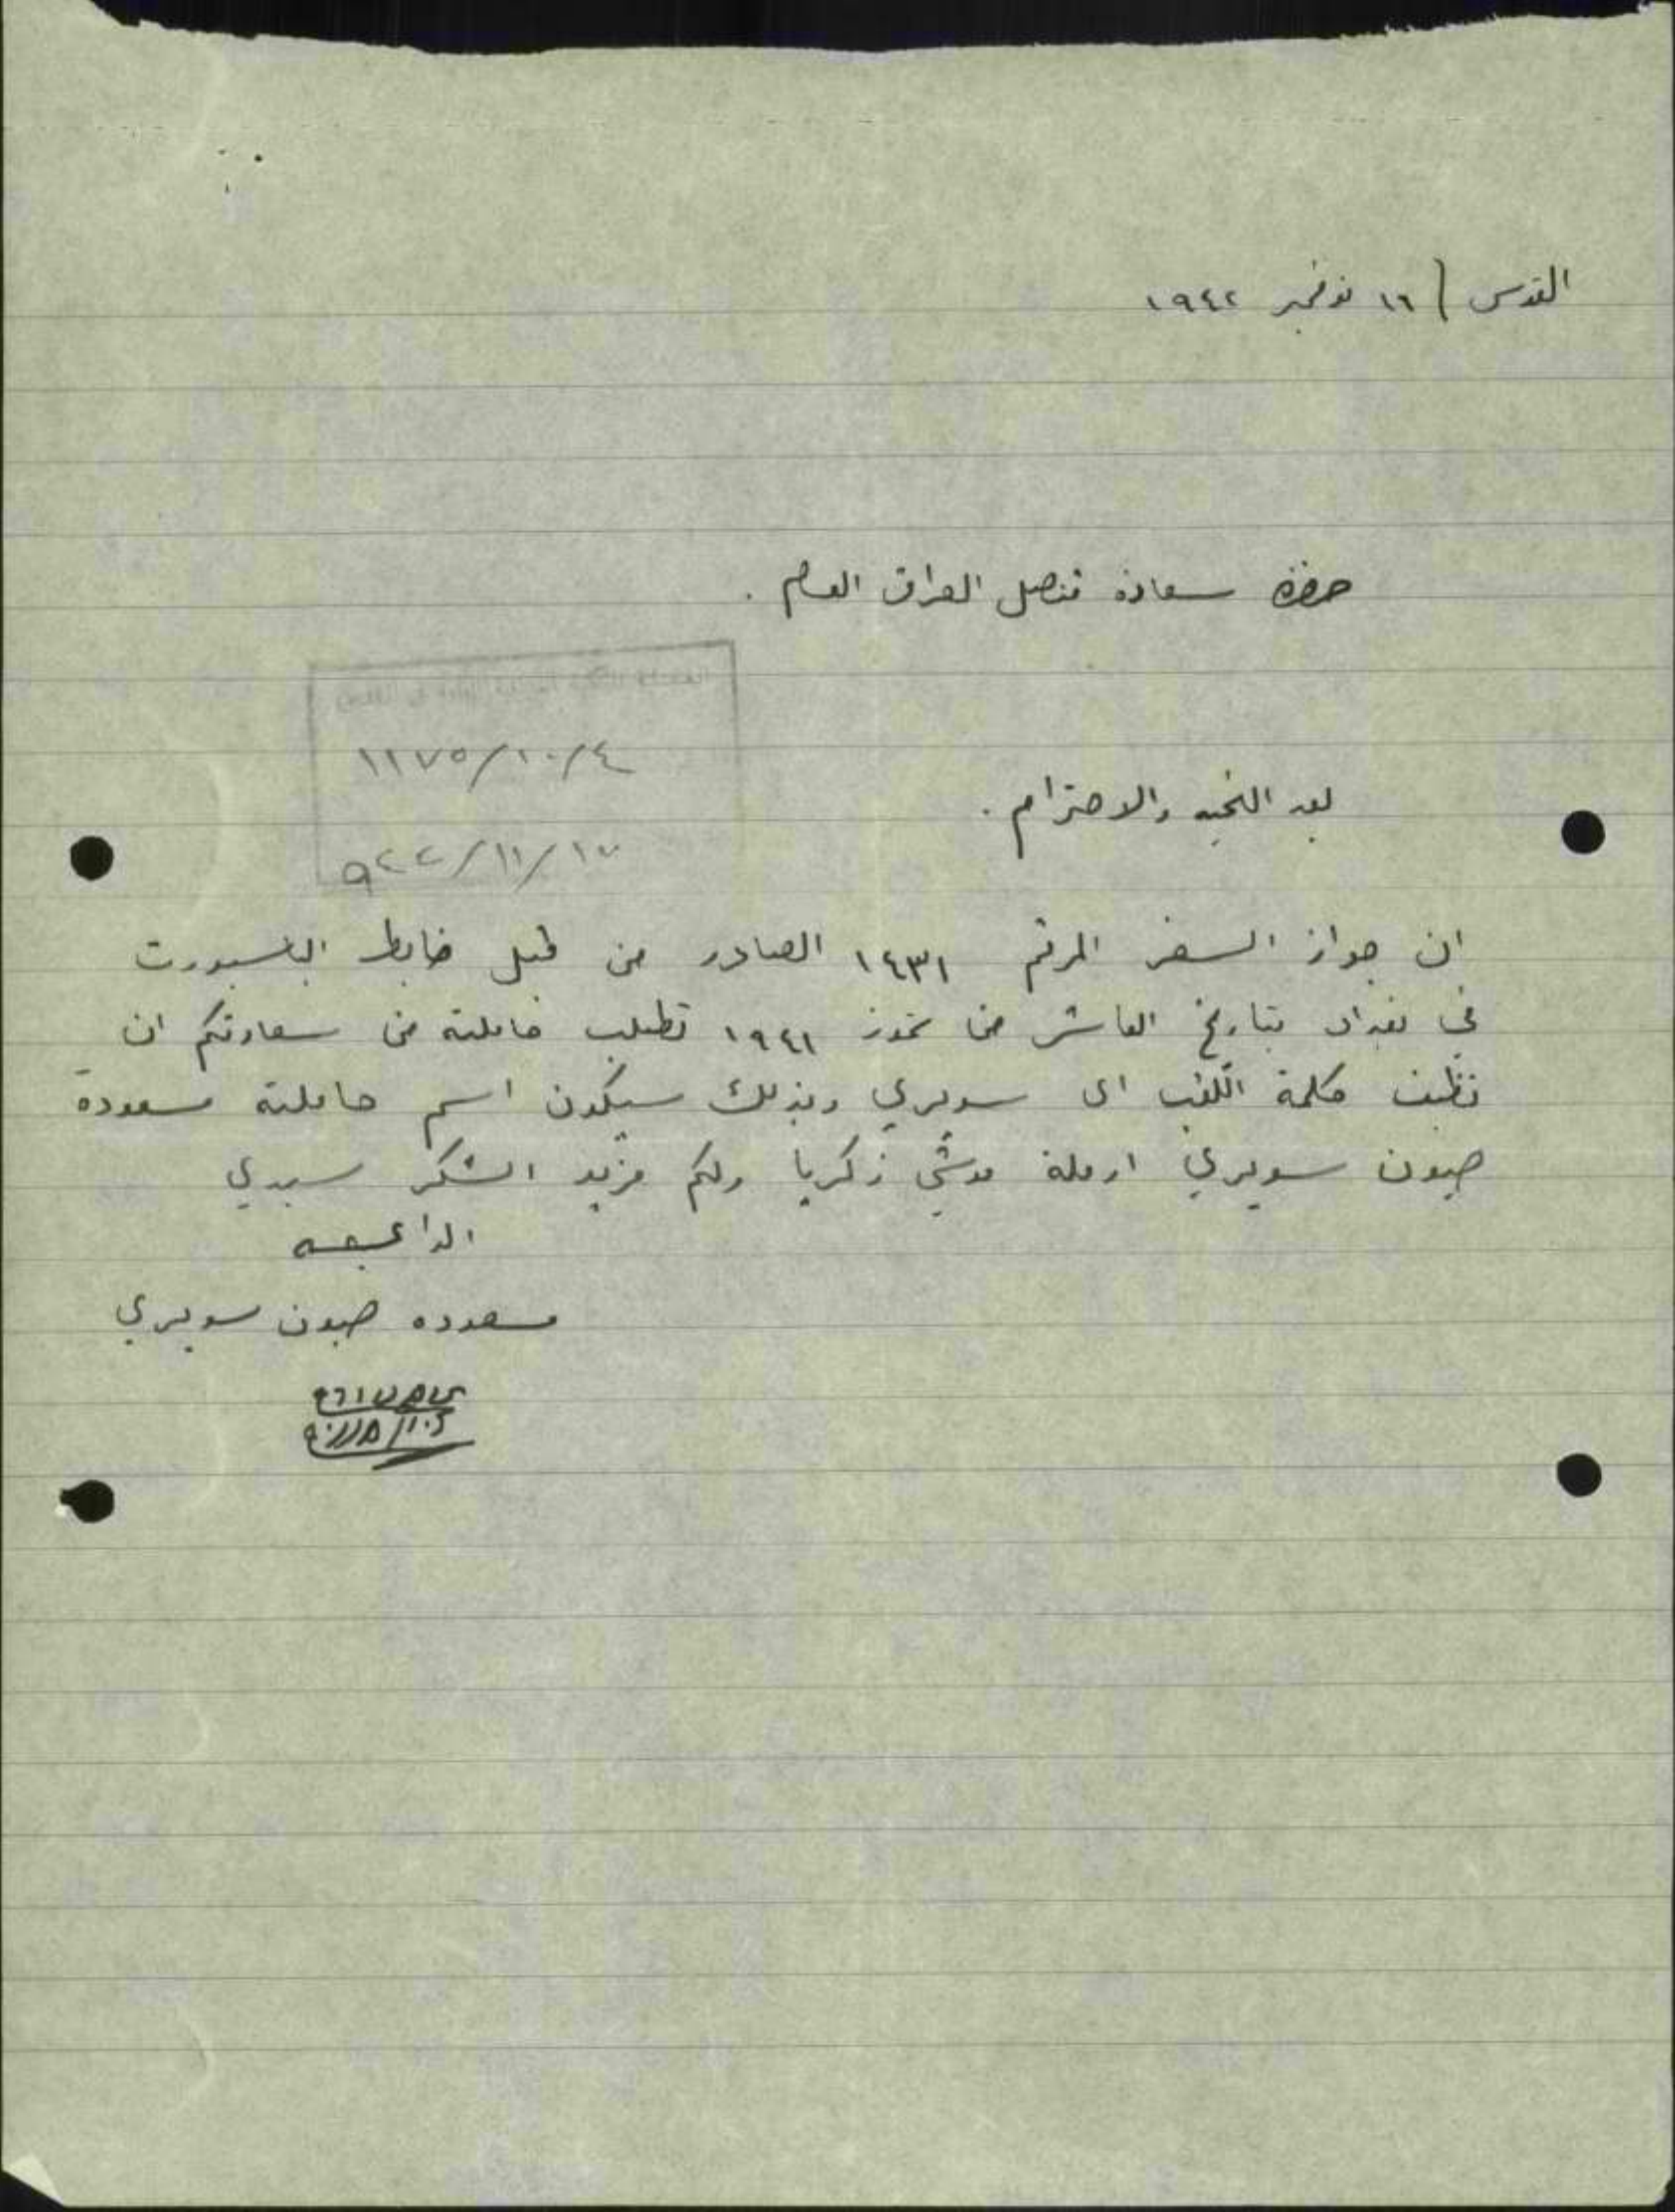 القدس / ١٦ نوفمبر ١٩٤٢
حضرة سعادة قنصل العراق العام .
١٢٧٥/١٠/٤
بعد التحيه والاحترام .
٩٤٢/١١/١٧
ان جواز السفر المرقم ١٤٣١ الصادر من قبل ضابط الباسبورت
في بغداد بتاريخ العاشر من تموز ١٩٤١ تطلب حاملته من سعادتكم ان
تظيف كلمة اللقب اى سويري وبذلك سيكون اسم حاملته مسعودة
صيون سويري ارملة موشي زكريا ولكم مزيد الشكر سيدي
الداعيه
مسعوده صيون سويري